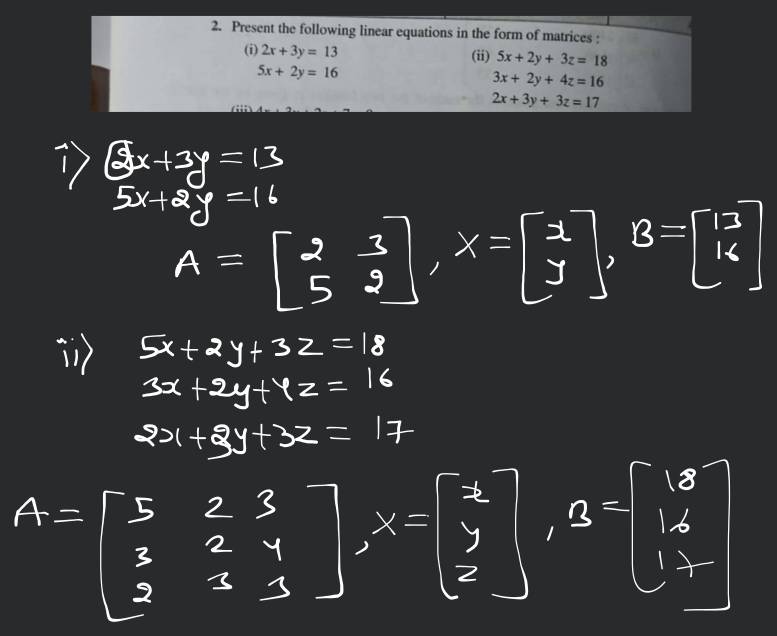 2. Present the following linear equations in the form of matrices :
(i) 2x + 3y = 13 (ii) 5x + 2y + 3z = 18
5x + 2y = 16 3x + 2y + 4z = 16
2x + 3y + 3z = 17
i) 2x+3y=13
5x+2y=16
A = [2 3
5 2], X = [x
y], B = [13
16]
ii) 5x+2y+3z=18
3x+2y+4z=16
2x+3y+3z=17
A = [5 2 3
3 2 4
2 3 3], X = [x
y
z], B = [18
16
17]